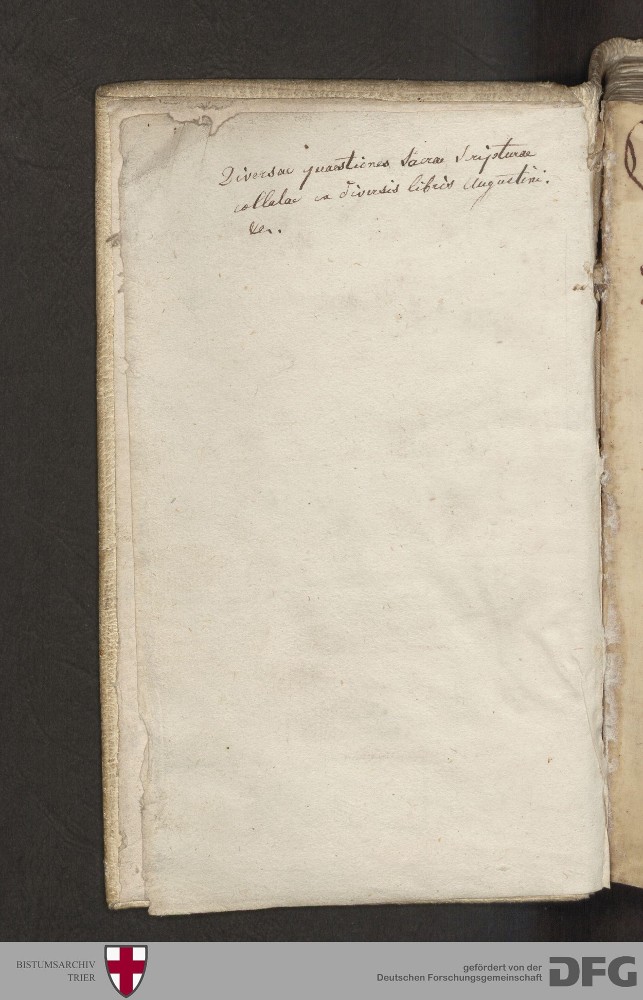 Diversae quaestiones Sacrae Scripturae
collatae ex diversis libris Augustini.
etc.
BISTUMSARCHIV
TRIER
gefördert von der
Deutschen Forschungsgemeinschaft
DFG